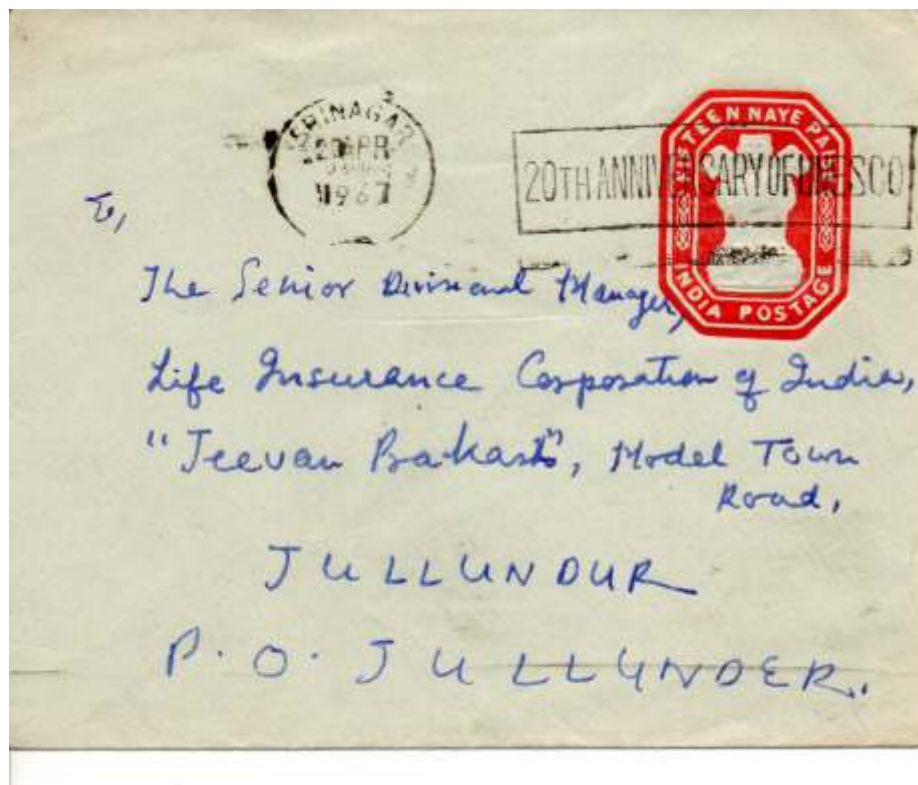 SRINAGAR
20 APR
1967
20TH ANNIVERSARY OF UNESCO
NAYE
INDIA POSTAGE
To,
The Senior Divisional Manager,
Life Insurance Corporation of India,
"Jeevan Prakash", Model Town
Road,
JULLUNDUR
P.O. JULLUNDER.